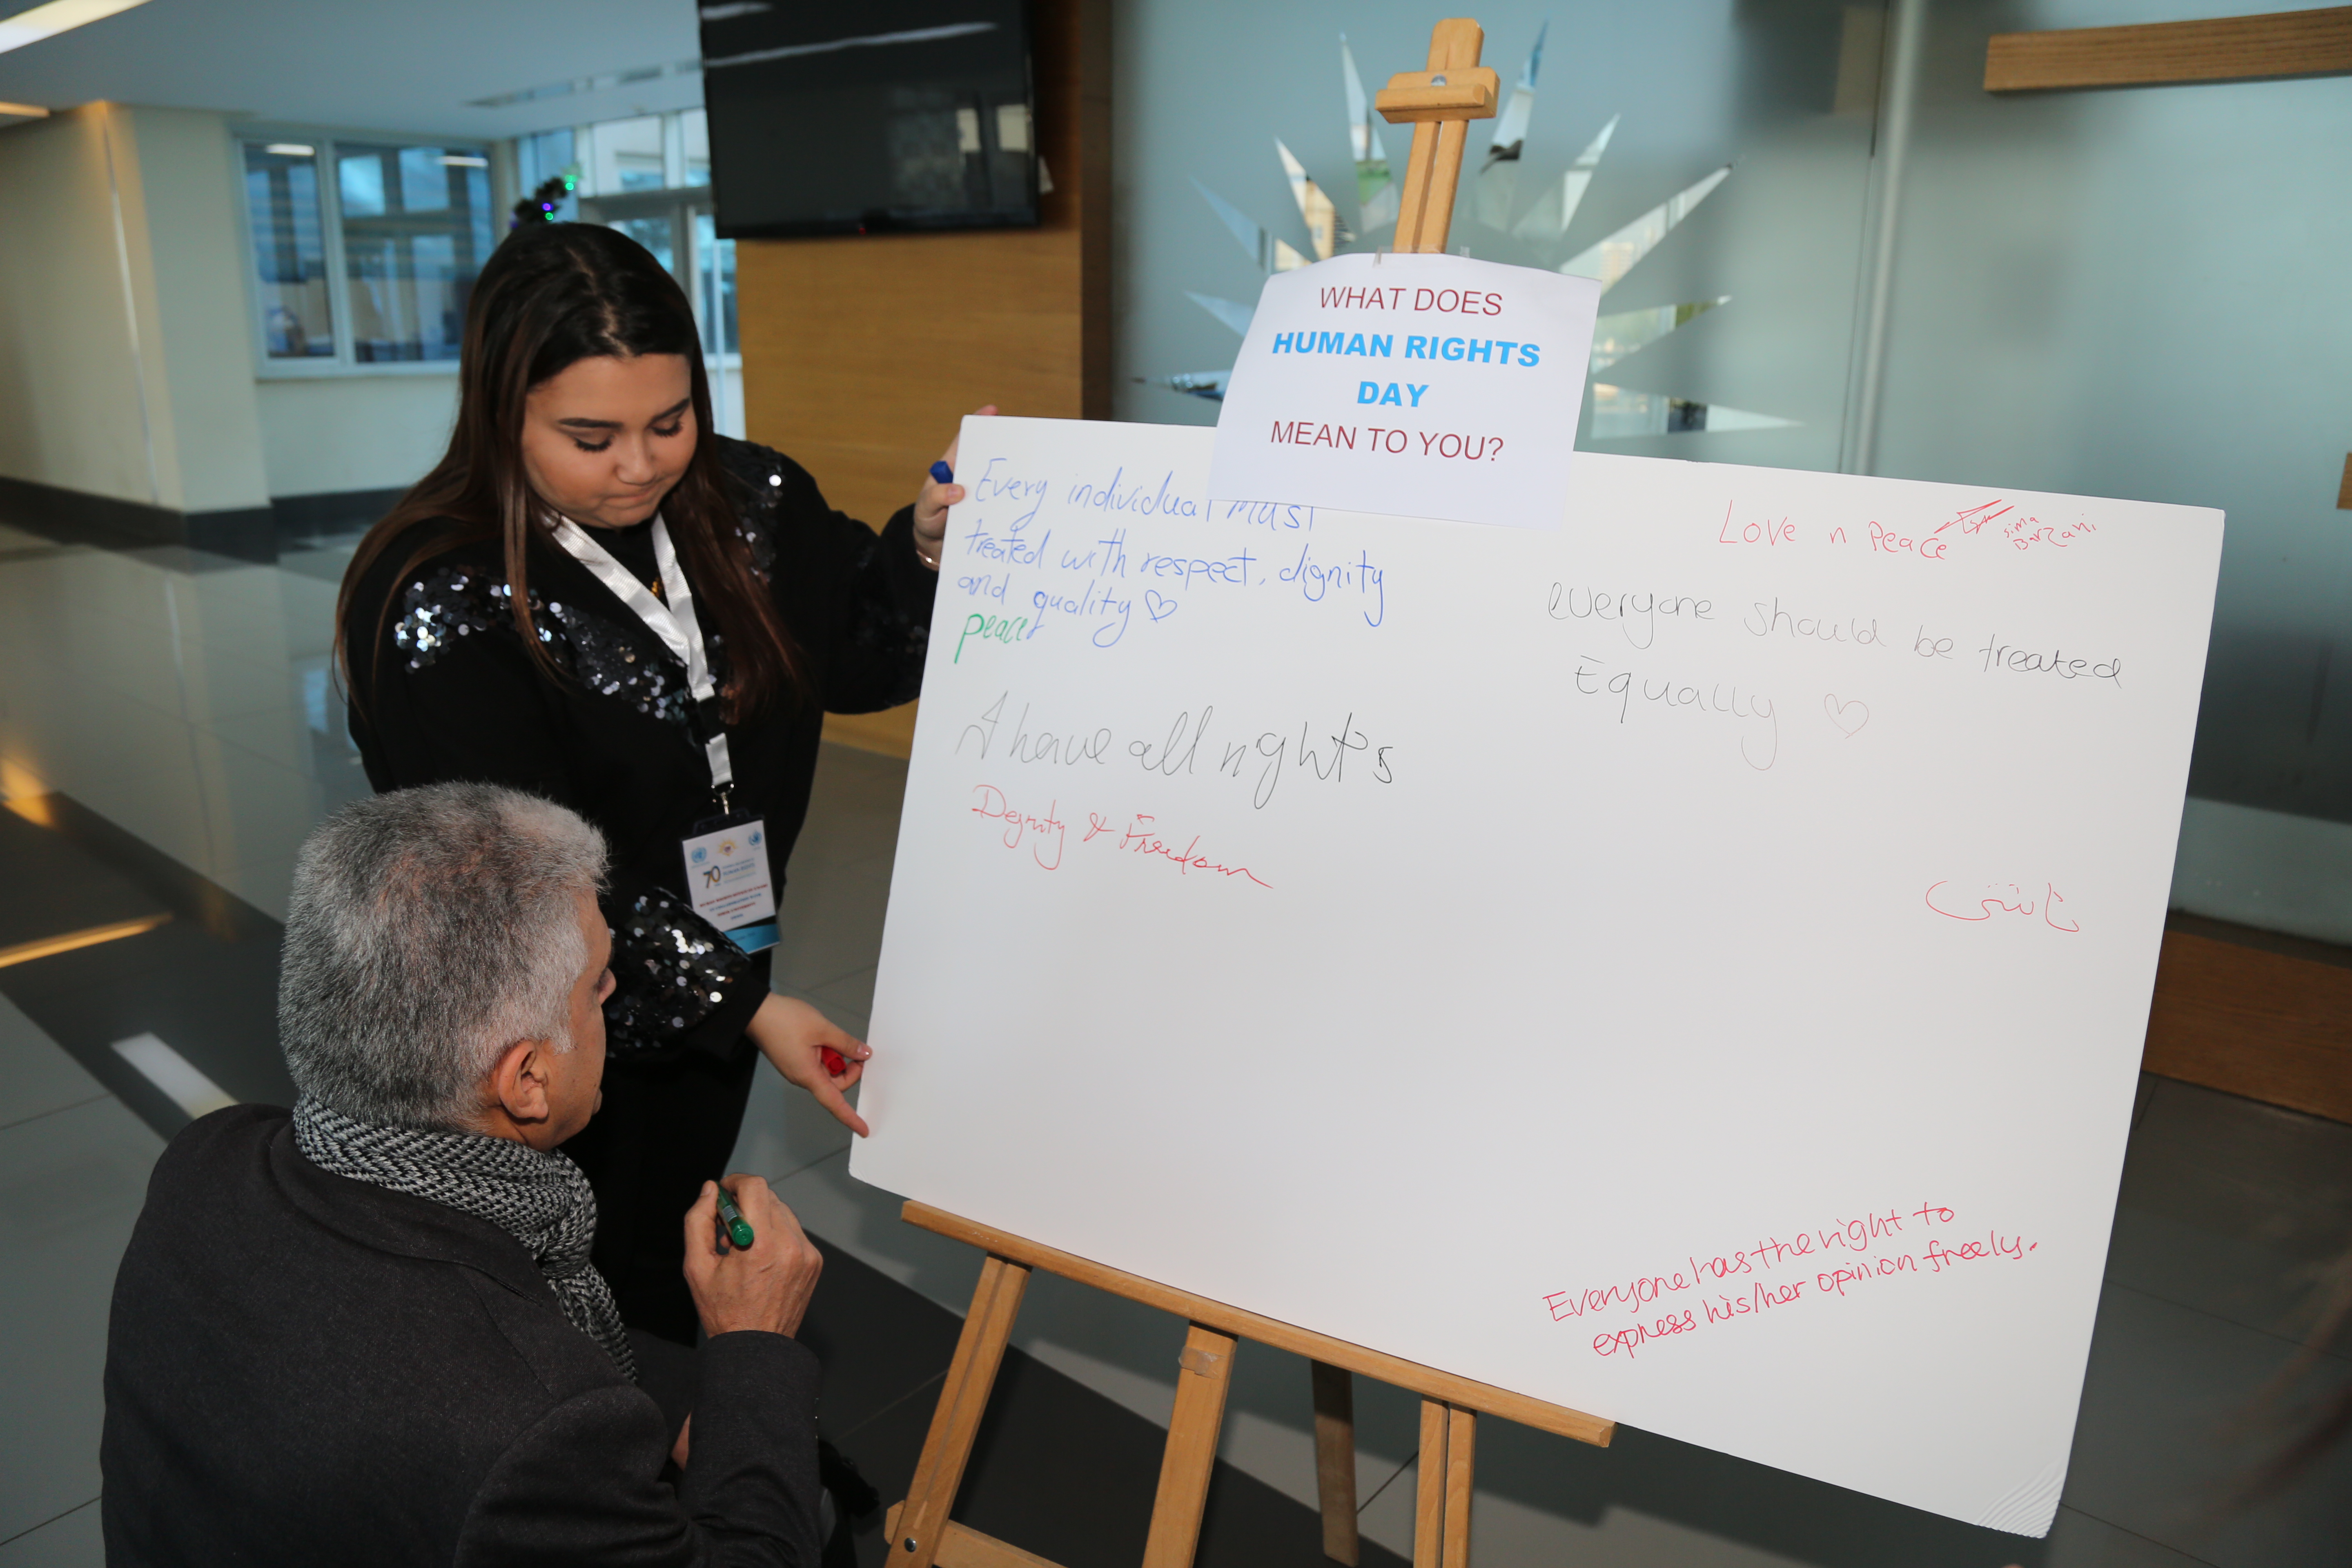 WHAT DOES
HUMAN RIGHTS
DAY
MEAN TO YOU?
Every individual must
treated with respect, dignity
and quality
peace
I have all right's
Degnity & Freedom
Love n Peace
Sima
Barzani
everyone should be treated
Equally
ئاشتی
Everyone has the right to
express his/her opinion freely.
70